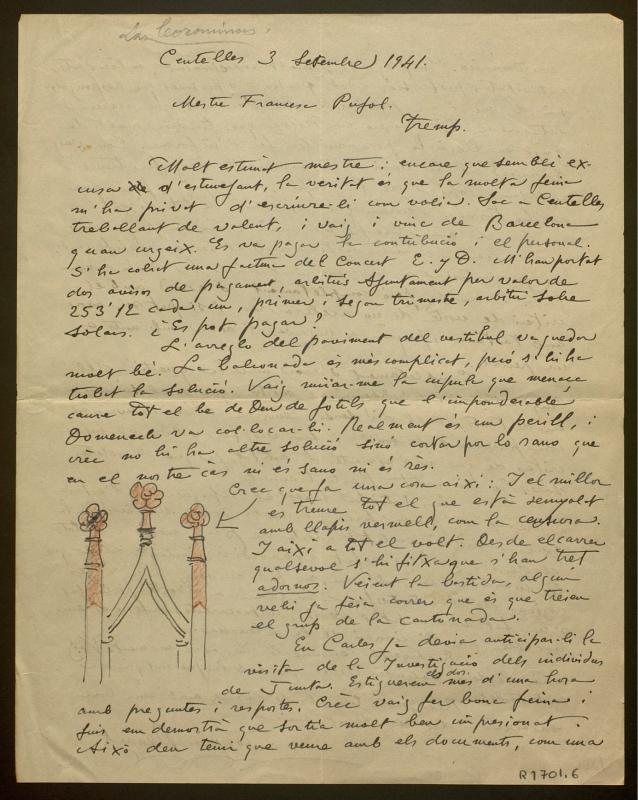 Centelles 3 Setembre 1941.
Mestre Francesc Pujol.
Tremp.
Molt estimat mestre: encare que sembli ex-
cusa d'estuejant, la veritat és que la molta feina
m'ha privat d'escriure-li com volia. Soc a Centelles
treballant de valent, i vaig i vinc de Barcelona
quan urgeix. Es va pagar la contribució i el personal.
S'ha cobrat una factura del Concert E. y D. M'han portat
dos avisos de pagament, arbitris Ajuntament per valor de
253'12 cada un, primer i segon trimestre, arbitri sobre
Solars. ¿Es pot pagar?
L'arreglo del paviment del vestíbul va quedar
molt bé. La balconada és més complicat, però s'hi ha
trobat la solució. Vaig mirar-me la cúpula que menaça
caure tot el be de Deu de fòtils que l'imponderable
Domenech va col·locar-hi. Realment és un perill, i
crèc no hi ha altre solució sinó cortar por lo sano que
en el nostre càs ni és sano ni és rès.
Crec que fa una cosa aixi: I el millor
es treure tot el que està senyalat
amb llapis vermell, com la censura.
I aixi a tot el volt. Desde el carrer
qualsevol s'hi fitxa que s'han tret
adornos. Veient la bastida, algun
vehi ja feia correr que és que treien
el grup de la cantonada.
En Carles ja devia anticipar-li la
visita de la Investigació dels individus
de Junta. Estiguerem els dos mes d'una hora
amb preguntes i respostes. Crèc vaig fer bona feina i
fins em demostrà que sortia molt ben impresionat.
Aixó deu tenir que veure amb els documents, com una
R1701.6